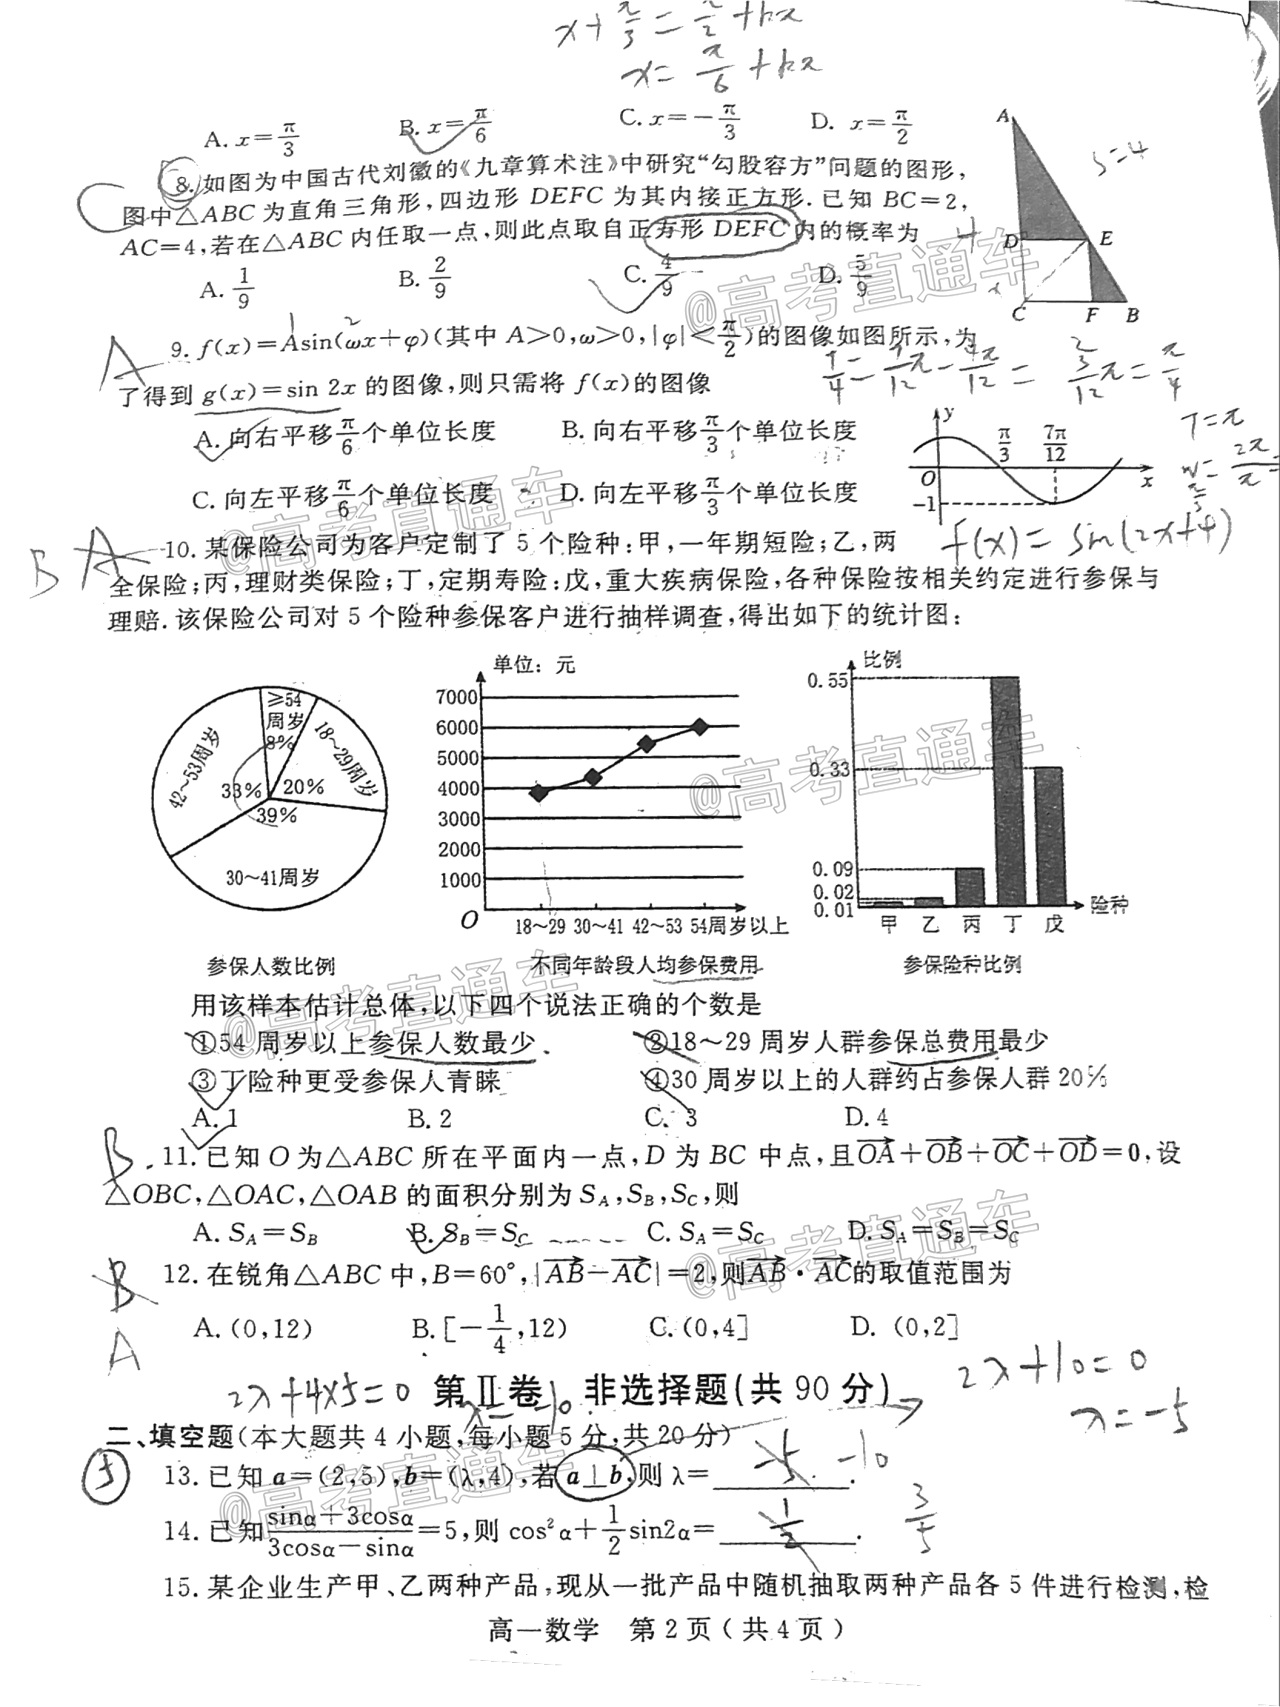 x+π/3=π/2+kπ
x=π/6+kπ
A. x=π/3 B. x=π/6 C. x=-π/3 D. x=π/2
8. 如图为中国古代刘徽的《九章算术注》中研究“勾股容方”问题的图形,
图中△ABC为直角三角形,四边形 DEFC 为其内接正方形. 已知 BC=2,
AC=4,若在△ABC内任取一点,则此点取自正方形 DEFC 内的概率为
A. 1/9 B. 2/9 C. 4/9 D. 5/9
A
D E
C F B
S=4
4
C
9. f(x)=Asin(ωx+φ)(其中 A>0,ω>0,|φ|<π/2)的图像如图所示,为
了得到 g(x)=sin 2x 的图像,则只需将 f(x)的图像
A
A. 向右平移π/6个单位长度 B. 向右平移π/3个单位长度
C. 向左平移π/6个单位长度 D. 向左平移π/3个单位长度
y
π/3 7π/12
O x
-1
T=π
B A
10. 某保险公司为客户定制了 5 个险种:甲,一年期短险;乙,两
全保险;丙,理财类保险;丁,定期寿险;戊,重大疾病保险,各种保险按相关约定进行参保与
理赔. 该保险公司对 5 个险种参保客户进行抽样调查,得出如下的统计图:
≥54周岁 8%
18~29周岁 20%
42~53周岁 33%
39%
30~41周岁
参保人数比例
单位: 元
7000
6000
5000
4000
3000
2000
1000
O
18~29 30~41 42~53 54周岁以上
不同年龄段人均参保费用
比例
0.55
0.33
0.09
0.02
0.01
甲 乙 丙 丁 戊 险种
参保险种比例
用该样本估计总体,以下四个说法正确的个数是
①54 周岁以上参保人数最少 ②18~29 周岁人群参保总费用最少
③丁险种更受参保人青睐 ④30 周岁以上的人群约占参保人群 20%
A. 1 B. 2 C. 3 D. 4
B
11. 已知 O 为△ABC 所在平面内一点,D 为 BC 中点,且OA+OB+OC+OD=0,设
△OBC,△OAC,△OAB 的面积分别为 S_A,S_B,S_C,则
A. S_A=S_B B. S_B=S_C C. S_A=S_C D. S_A=S_B=S_C
B
A
12. 在锐角△ABC 中,B=60°,|AB-AC|=2,则AB·AC的取值范围为
A. (0,12) B. [-1/4,12) C. (0,4] D. (0,2]
2λ+4×5=0
λ=-10
2λ+10=0
λ=-5
第Ⅱ卷 非选择题(共 90 分)
二、填空题(本大题共 4 小题,每小题 5 分,共 20 分)
13. 已知 a=(2,5),b=(λ,4),若 a⊥b,则 λ=______.
-5 -10
14. 已知(sinα+3cosα)/(3cosα-sinα)=5,则 cos²α+1/2sin2α=______.
1/2 3/5
15. 某企业生产甲、乙两种产品,现从一批产品中随机抽取两种产品各 5 件进行检测,检
高一数学 第 2 页 ( 共 4 页 )
@高考直通车
@高考直通车
@高考直通车
@高考直通车
@高考直通车
@高考直通车